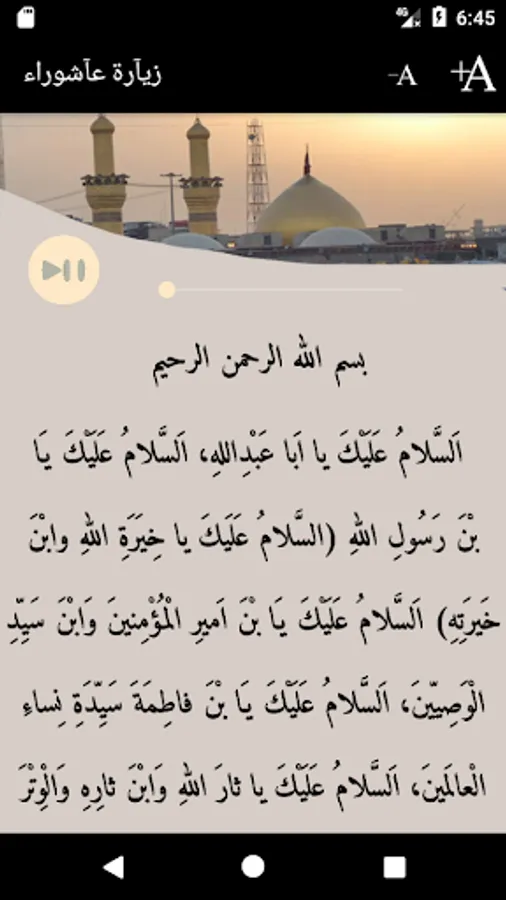 4G 6:45
زيآرة عآشوراء -A +A
بسم الله الرحمن الرحيم
اَلسَّلامُ عَلَيْكَ يا اَبا عَبْدِاللهِ، اَلسَّلامُ عَلَيْكَ يَا
بْنَ رَسُولِ اللهِ (السَّلامُ عَلَيَكَ يا خِيَرَةِ اللهِ وابْنَ
خَيرَتِهِ) اَلسَّلامُ عَلَيْكَ يَا بْنَ اَميرِ الْمُؤْمِنينَ وَابْنَ سَيِّدِ
الْوَصِيّينَ، اَلسَّلامُ عَلَيْكَ يَا بْنَ فاطِمَةَ سَيِّدَةِ نِساءِ
الْعالَمينَ، اَلسَّلامُ عَلَيْكَ يا ثارَ اللهِ وَابْنَ ثارِهِ وَالْوِتْرَ